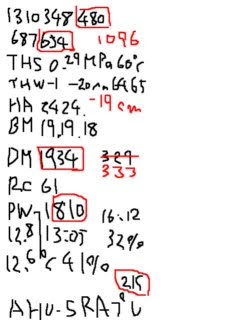 1310348 480
687 634 1096
THS 0.29MPa 60℃
THW-1 -20mm 64 65
HA 2424 -19cm
BM 19,19.18
DM 1934 327
333
RC 61
PW 1810 16:12
12.8 13:05 32%
12.6℃ 41%
215